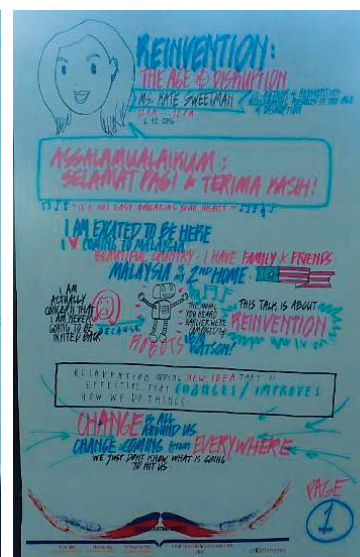 REINVENTION:
THE AGE OF DISRUPTION
MS. KATE SWEETMAN
AUTHOR OF REINVENTION:
IN THE AGE
OF DISRUPTION
ASSALAMUALAIKUM:
SELAMAT PAGI & TERIMA KASIH!
"IT'S NOT EASY BREAKING YOUR HEART"
I AM EXCITED TO BE HERE
I ♥ COMING TO MALAYSIA
BEAUTIFUL COUNTRY: I HAVE FAMILY & FRIENDS
MALAYSIA IS MY 2ND HOME
I AM
ACTUALLY
CONCERN THAT
I AM NEVER
GOING TO BE
INVITED BACK.
BECAUSE
ROBOTS
YOU HEARD
EARLIER WERE
IBM
WATSON!
THIS TALK IS ABOUT
REINVENTION
REINVENTION ADDING NEW IDEA THAT IS
EFFECTIVE THAT CHANGES/IMPROVES
HOW WE DO THINGS.
CHANGE IS ALL
AROUND US.
CHANGE COMING from EVERYWHERE
WE JUST DON'T KNOW WHAT IS GOING
TO HIT US.
PAGE
1